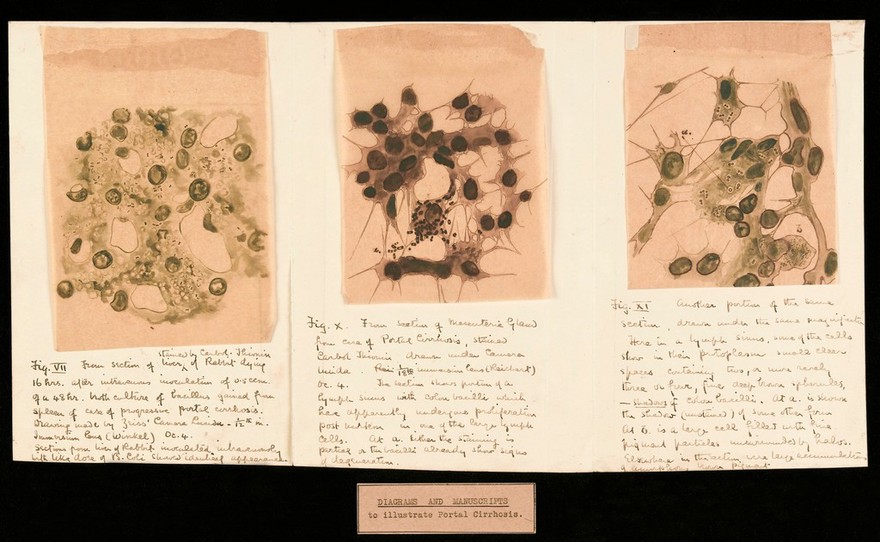 stained by Carbol-Thionin
Fig. VII From section of liver, of Rabbit dying
16 hrs. after intravenous inoculation of 0.5 ccm.
of a 48 hr. broth culture of bacillus gained from
spleen of case of progressive portal cirrhosis.
Drawing made by Zeiss' Camera Lucida. 1/12 in.
Immersion lens (Winkel) Oc. 4.
Sections from liver of Rabbit inoculated intravenously
with like dose of B. Coli showed identical appearances
Fig. X. From section of Mesenteric Gland
from case of Portal Cirrhosis, stained
Carbol Thionin drawn under Camera
lucida. immersion lens (Reichert)
Oc. 4. The section shows portion of a
lymph sinus with colon bacilli which
have apparently undergone proliferation
post mortem in one of the large lymph
cells. At a. where the staining is
partial the bacilli already show signs
of degeneration.
Fig. XI Another portion of the same
section, drawn under the same magnification
Here in a lymph sinus, some of the cells
show in their protoplasm small clear
spaces containing two, or more rarely
three or four, fine deep brown spherules,
— shadows of colon bacilli. At a. is shown
the shadow (unstained) of some other form
At b. is a large cell filled with fine
pigment particles surrounded by halos.
Elsewhere in the section were large accumulations
of brown pigment
DIAGRAMS AND MANUSCRIPTS
to illustrate Portal Cirrhosis.